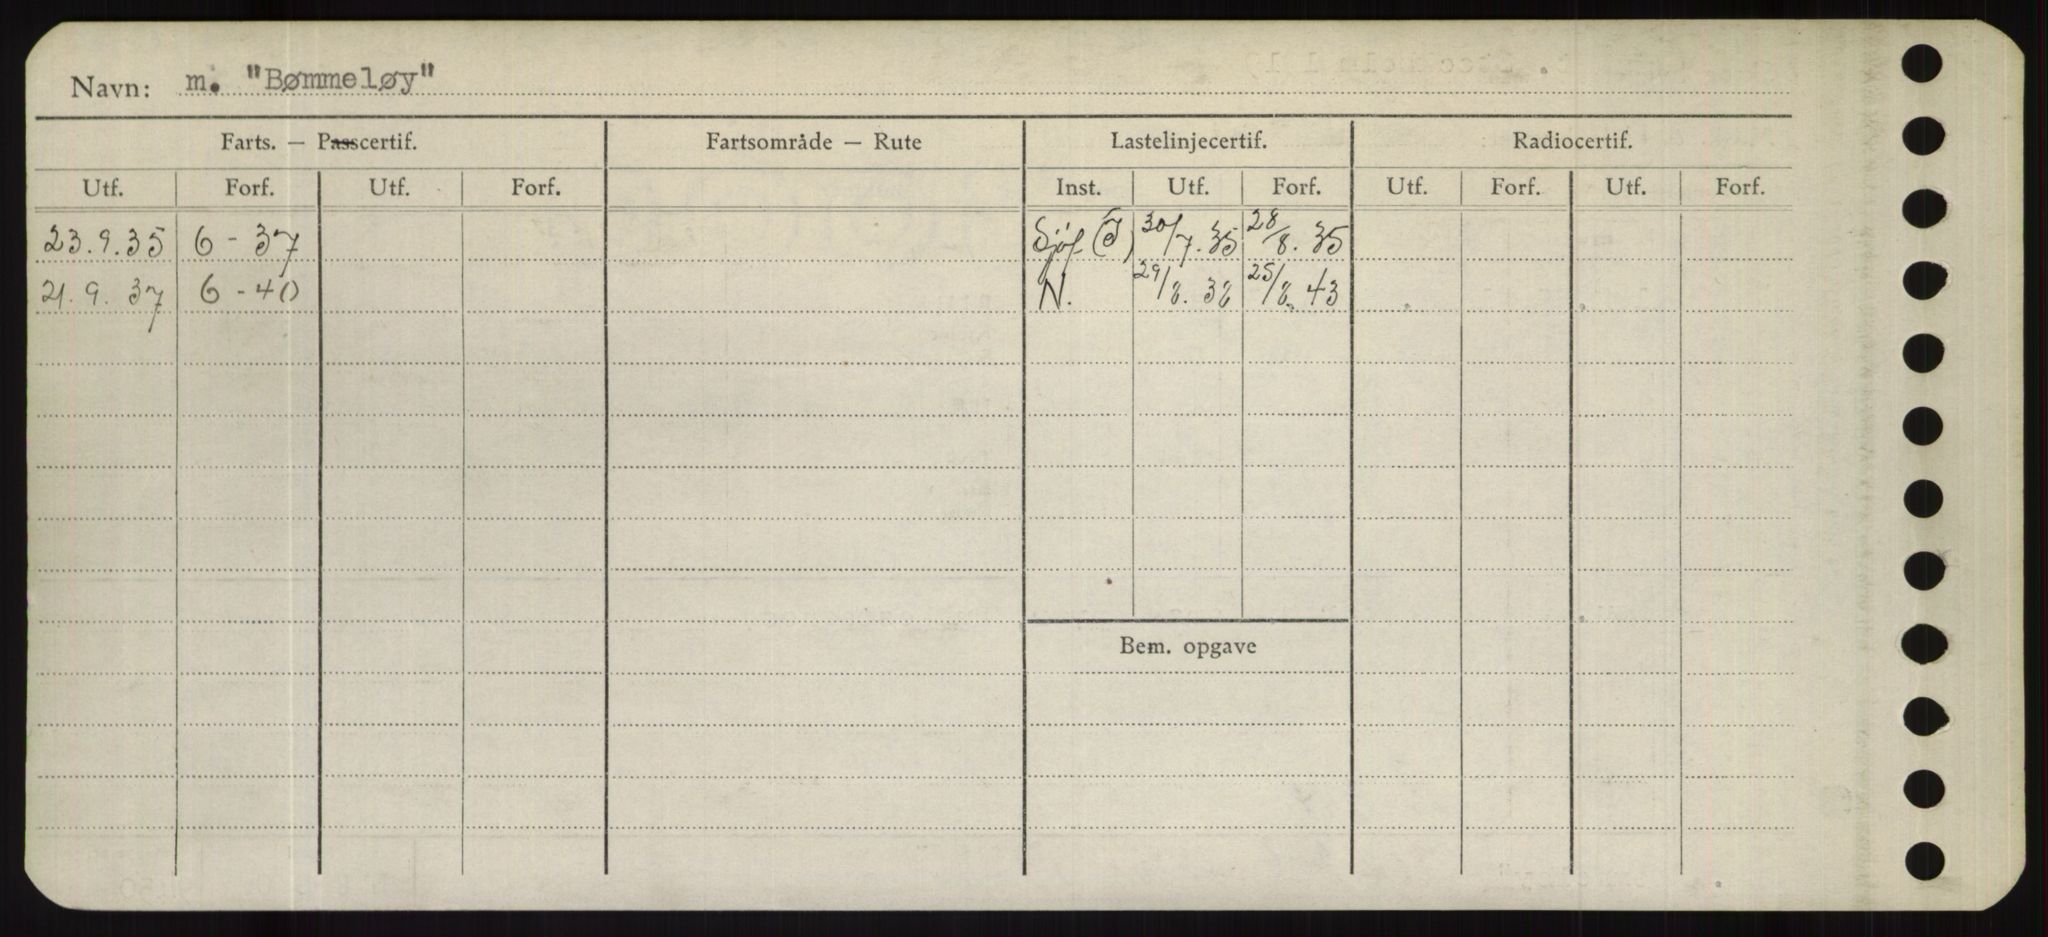 Navn: m. "Bømmeløy"
Farts. — Passcertif. Fartsområde — Rute Lastelinjecertif. Radiocertif.
Utf. Forf. Utf. Forf. Inst. Utf. Forf. Utf. Forf. Utf. Forf.
23.9.35 6-37 Sjöf 30/7.35 28/8.35
21.9.37 6-40 N. 29/8.38 25/8.43
Bem. opgave